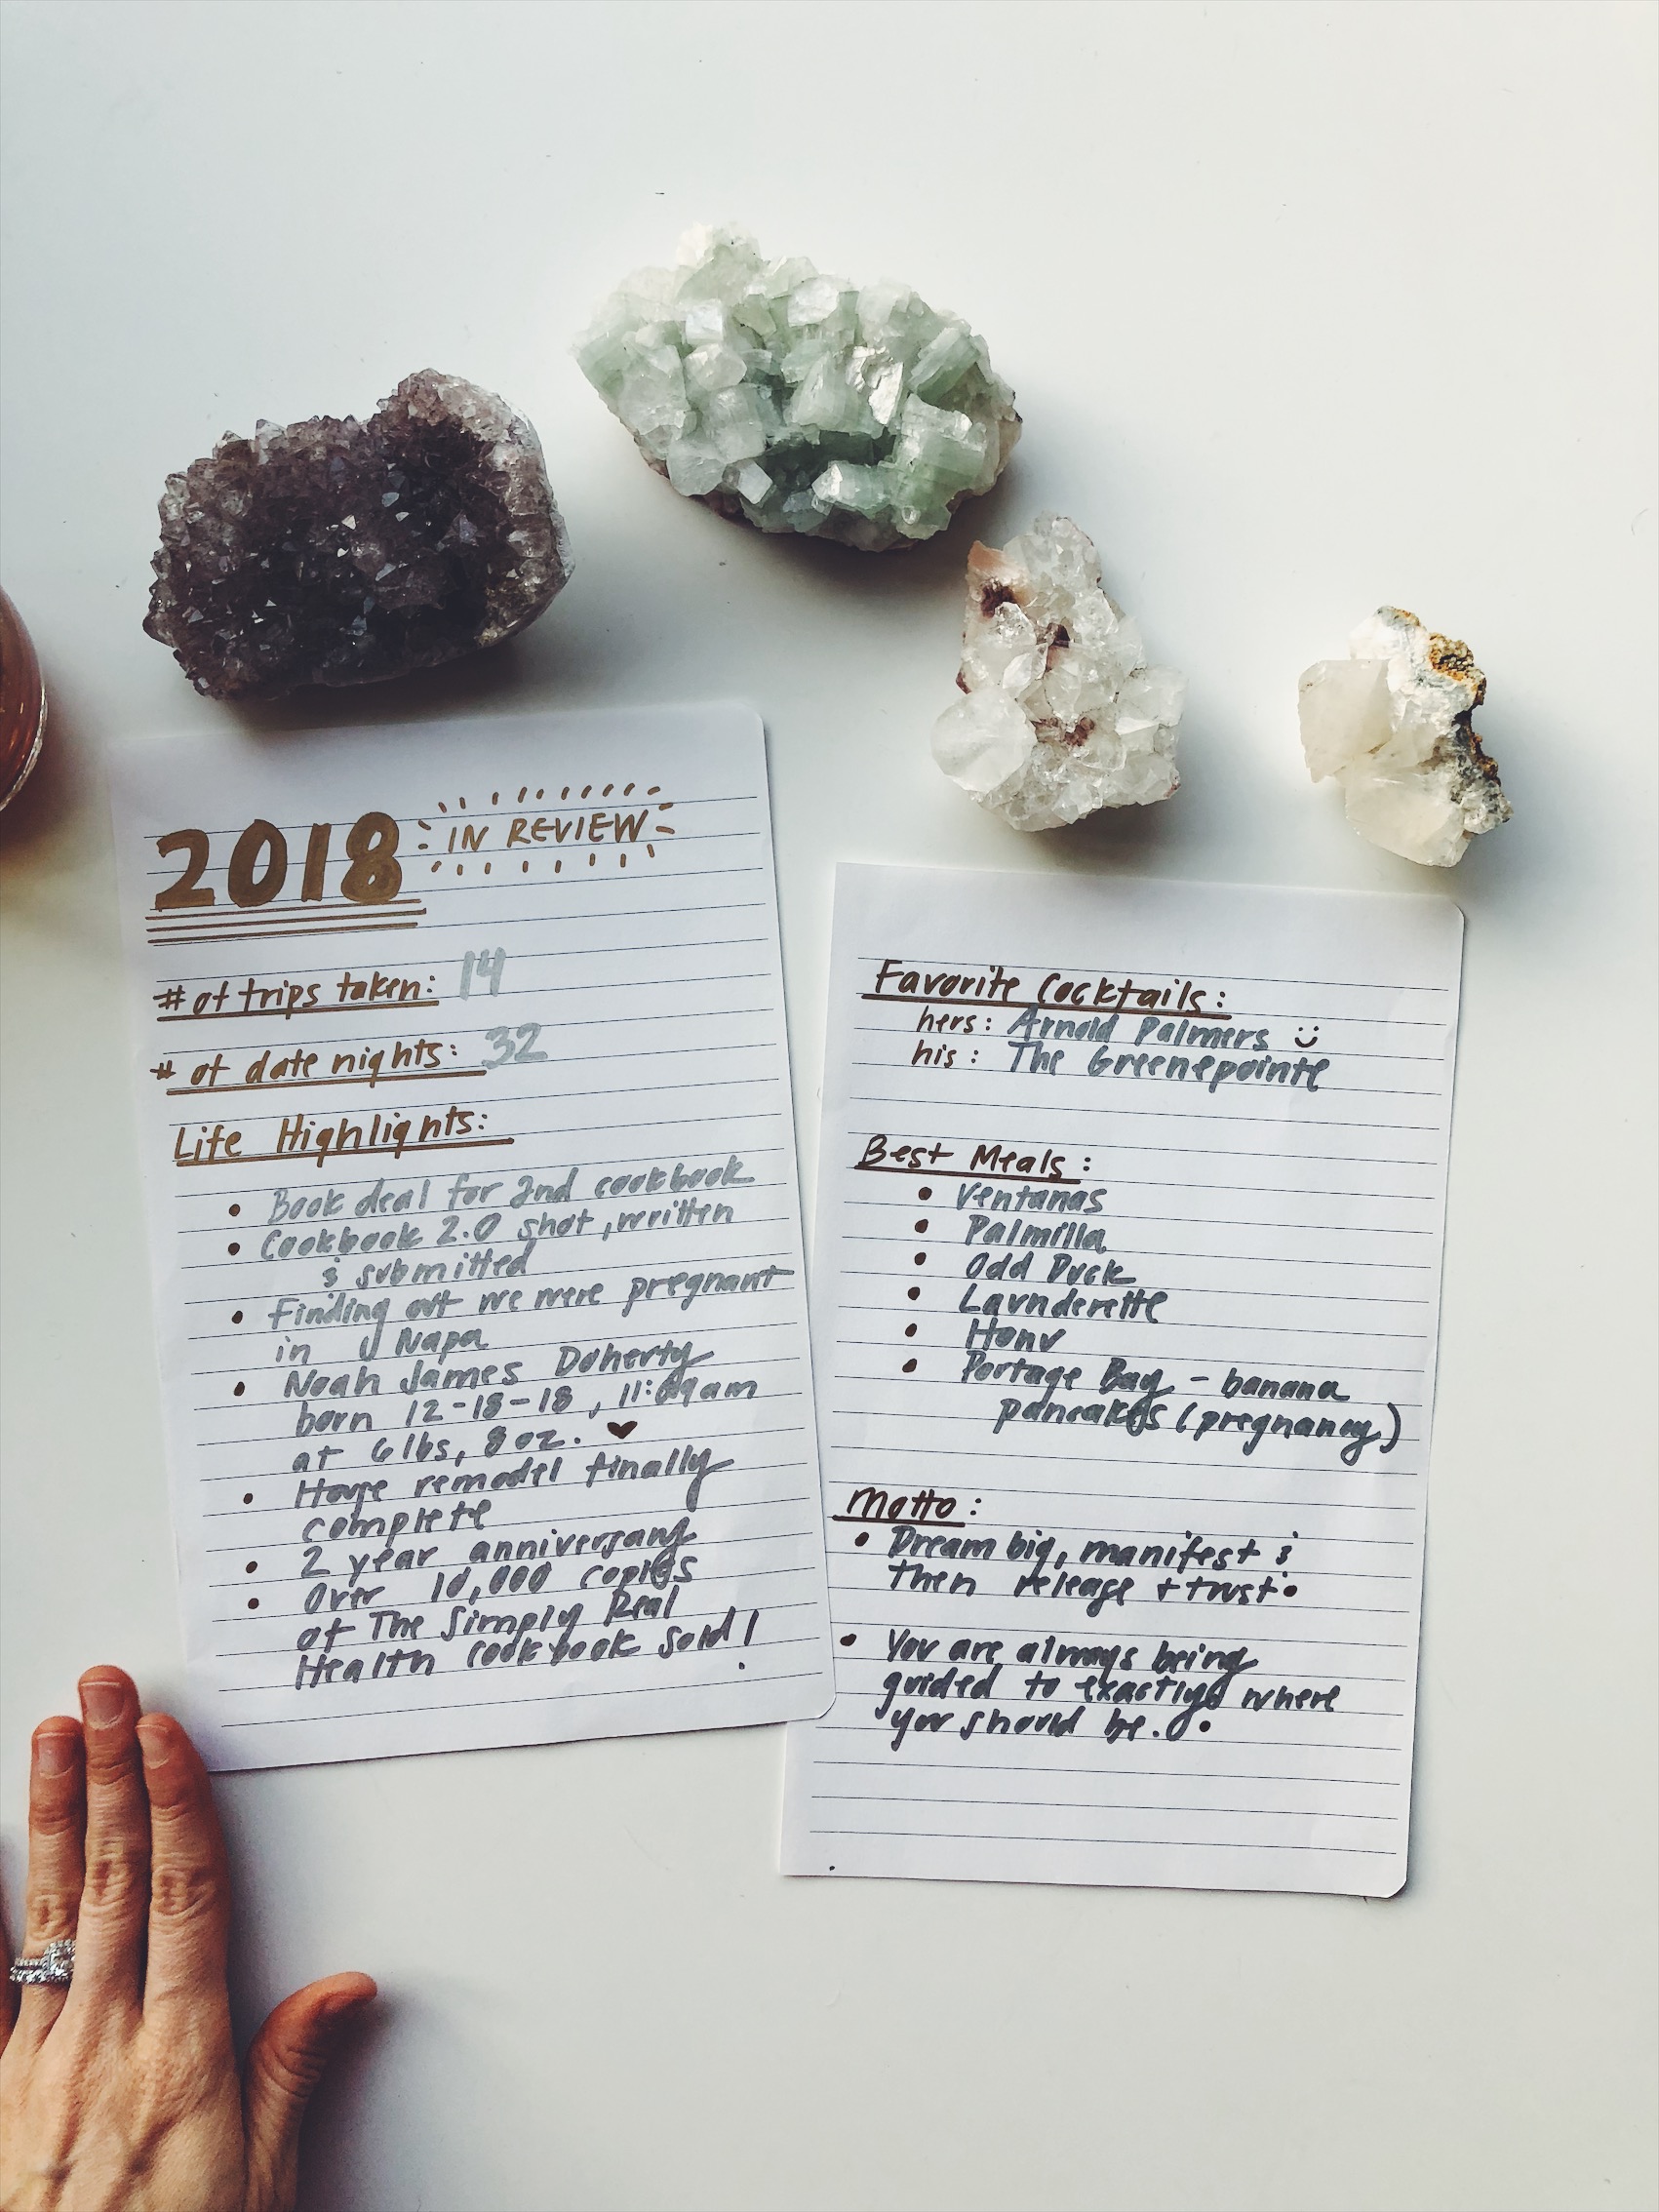 2018 IN REVIEW
# of trips taken: 14
# of date nights: 32
Life Highlights:
• Book deal for 2nd cookbook
• Cookbook 2.0 shot, written
& submitted
• Finding out we were pregnant
in Napa
• Noah James Doherty
born 12-18-18, 11:09am
at 6 lbs, 8 oz. ♥
• House remodel finally
complete
• 2 year anniversary
• Over 10,000 copies
of The Simply Real
Health cookbook sold!
Favorite Cocktails:
hers: Arnold Palmers :)
his: The Greenepointe
Best Meals:
• Ventanas
• Palmilla
• Odd Duck
• Launderette
• Honu
• Portage Bay - banana
pancakes (pregnancy)
Motto:
• Dream big, manifest &
then release + trust.
• You are always being
guided to exactly where
you should be.